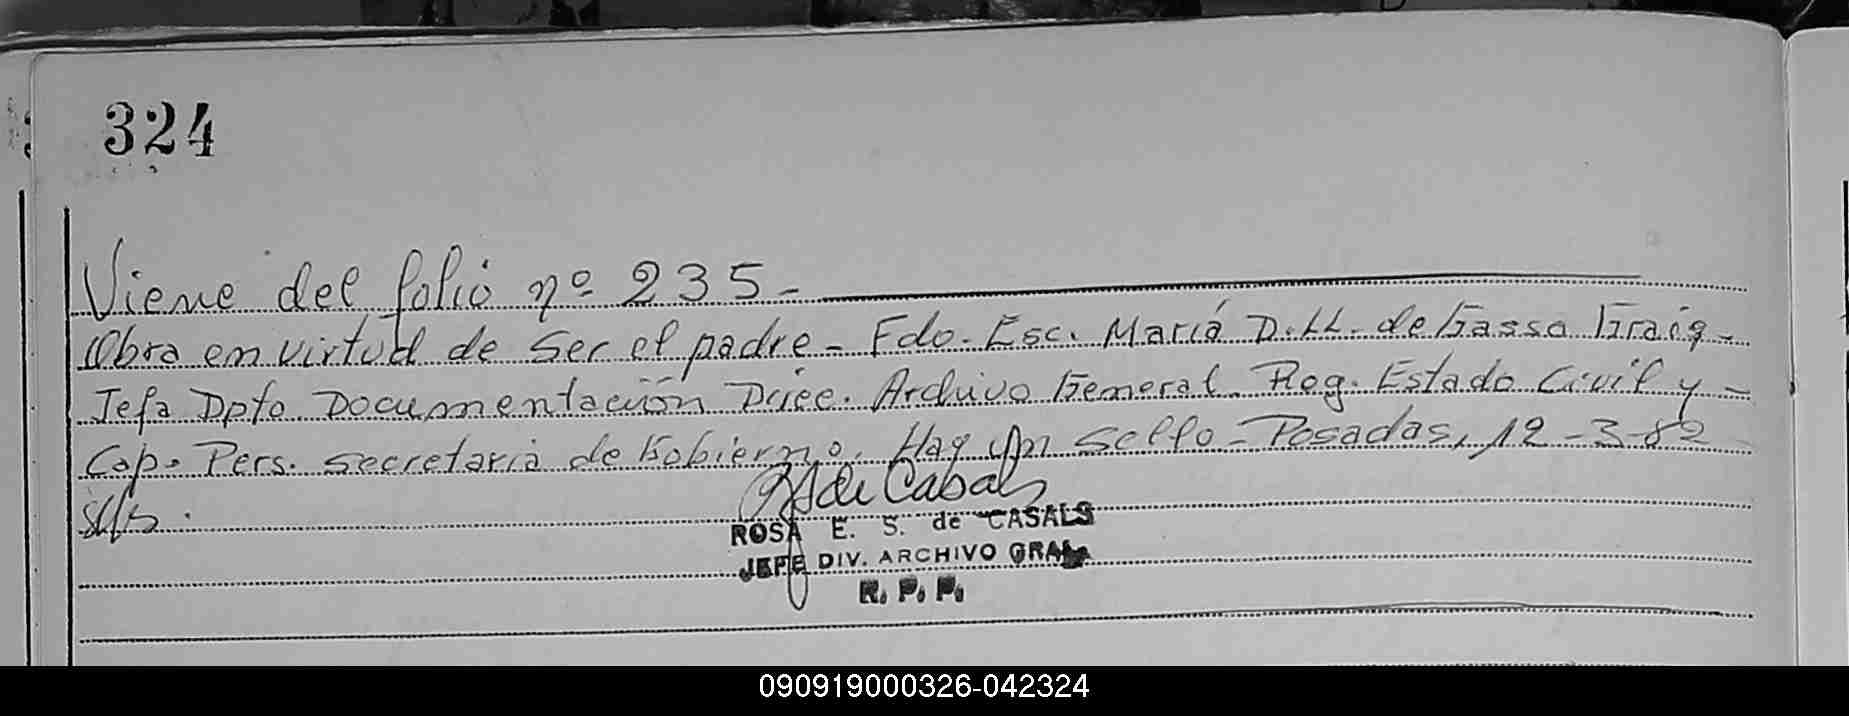 324
Viene del folio nº 235.-
Obra en virtud de ser el padre - Fdo. Esc. María D. LL. de Gassa
Jefa Dpto Documentación Direc. Archivo General. Reg. Estado Civil y -
Cap. Pers. secretaria de Gobierno. Hay un sello - Posadas, 12-3-82
ROSA E. S. de CASALS
JEFE DIV. ARCHIVO GRAL.
R. P. P.
090919000326-042324